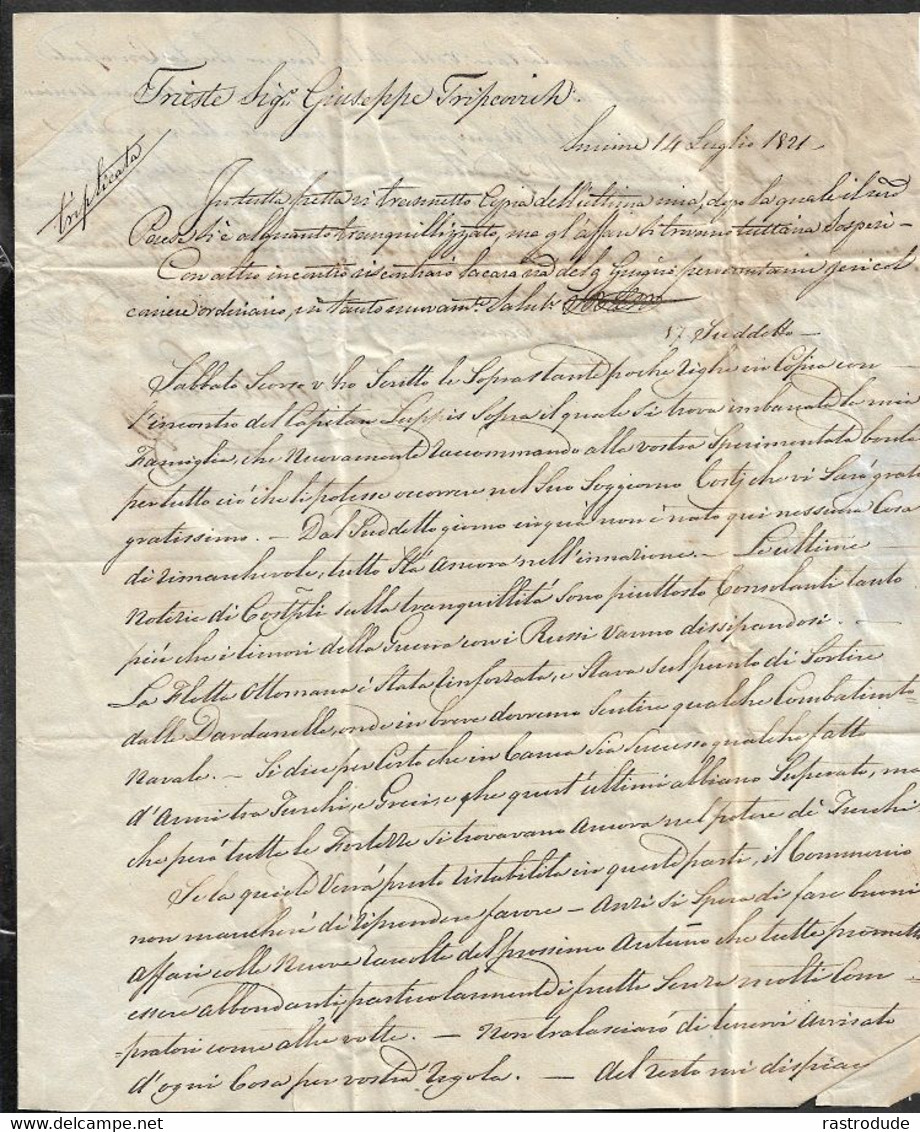 Trieste Sigr. Giuseppe Tripcovich.
Smirne 14 Luglio 1821
triplicata
In tutta fretta vi trasmetto Copia dell'ultima mia, dopo la quale il
Paese si è alquanto tranquillizzato, ma gl'affari si trovano tuttavia sospesi -
Con altro incontro riscontrarò la cara vra del 9 Giugno
ordinario, in tanto nuovamte. Saluto
17 Suddetto -
Sabbato Scorso v'ho Scritto le Soprastanti poche righe in Copia con
l'incontro del Capitan Luppis Sopra il quale si trova imbarcata la mia
Famiglia, che Nuovamente raccommando alla vostra Sperimentata bontà
per tutto ciò che li potesse occorrere nel Suo Soggiorno Costj che vi Sarò grat
gratissimo. - Dal Suddetto giorno in quà non è nato qui nessuna Cosa
di rimarchevole, tutto Stà Ancora nell'innazione. - Le ultime
Notizie di Costpli sulla tranquillità sono piuttosto Consolanti tanto
più che i timori della Guerra con i Russi Vanno dissipandosi. -
La Flotta Ottomana è Stata rinforzata, e Stava sul punto di Sortire
dalle Dardanelle, onde in breve dovremo Sentire qualche Combatimto
Navale. - Si dice per Certo che in Canea Sia Successo qualche fatto
d'Armi tra Turchi, e Greci, e che quest'ultimi abbiano Superato, ma
che però tutte le Fortezze si trovavano Ancora nel potere di Turchi
Se la quiete Verrà presto ristabilita in queste parti, il Commercio
non mancherà di riprendere favore - Anzi si Spera di fare buoni
affari colle Nuove raccolte del prossimo Autuño che tutte promett
essere abbondanti, particolarmente i frutti Senza molti Com
=pratori come altre volte. - Non tralasciarò di tenervi Avvisato
d'ogni Cosa per vostra regola. - Del resto mi dispiac
www.delcampe.net
rastrodude